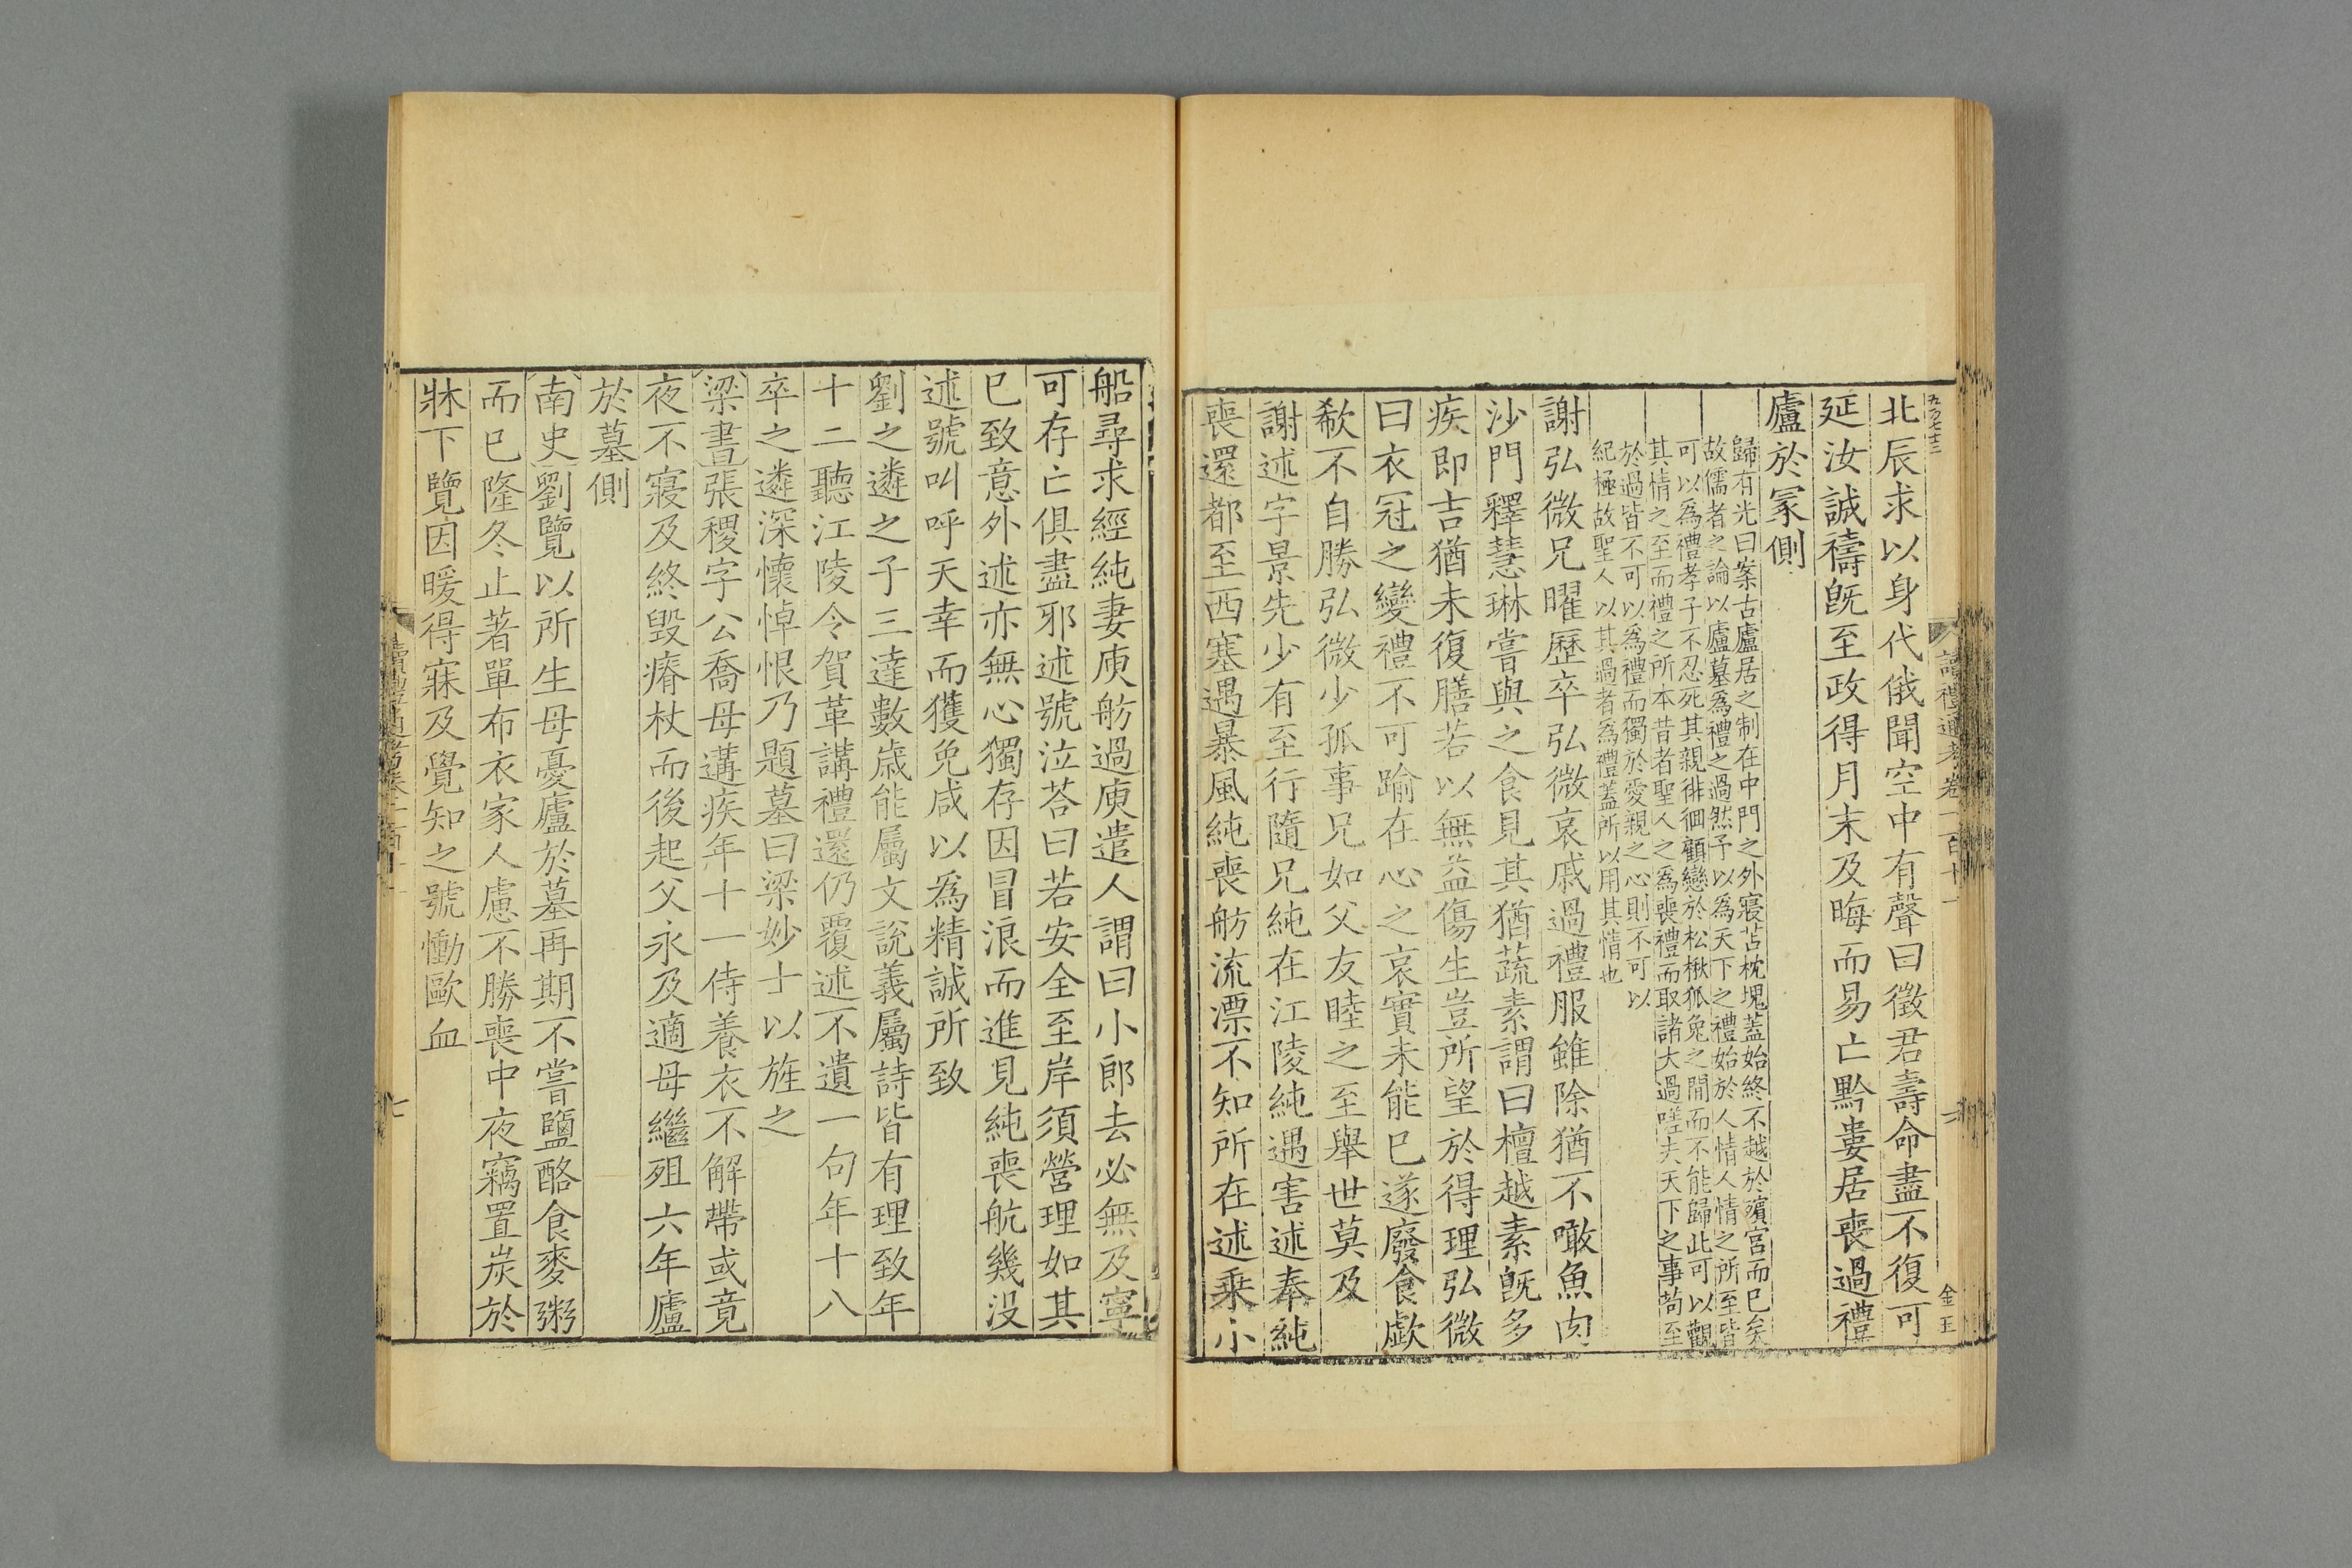 北辰求以身代俄聞空中有聲曰徵君壽命盡不復可
延汝誠禱旣至政得月末及晦而易亡黔婁居喪過禮
廬於冢側
歸有光曰案古廬居之制在中門之外寢苫枕塊蓋始終不越於殯宮而已矣
故儒者之論以廬墓爲禮之過然予以爲天下之禮始於人情人情之所至皆
可以爲禮孝子不忍死其親徘徊顧戀於松楸狐兔之間而不能歸此可以觀
其情之至而禮之所本昔者聖人之爲喪禮而取諸大過嗟夫天下之事苟至
於過皆不可以爲禮而獨於愛親之心則不可以
紀極故聖人以其過者爲禮蓋所以用其情也
謝弘微兄曜歷卒弘微哀戚過禮服雖除猶不噉魚肉
沙門釋慧琳嘗與之食見其猶蔬素謂曰檀越素旣多
疾即吉猶未復膳若以無益傷生豈所望於得理弘微
曰衣冠之變禮不可踰在心之哀實未能已遂廢食歔
欷不自勝弘微少孤事兄如父友睦之至舉世莫及
謝述字景先少有至行隨兄純在江陵純遇害述奉純
喪還都至西塞遇暴風純喪舫流漂不知所在述乘小
讀禮通考卷一百十一
六
金玉
船尋求經純妻庾舫過庾遣人謂曰小郎去必無及寧
可存亡俱盡邪述號泣荅曰若安全至岸須營理如其
已致意外述亦無心獨存因冒浪而進見純喪航幾没
述號叫呼天幸而獲免咸以爲精誠所致
劉之遴之子三達數歳能屬文說義屬詩皆有理致年
十二聽江陵令賀革講禮還仍覆述不遺一句年十八
卒之遴深懷悼恨乃題墓曰梁妙士以旌之
梁書張稷字公喬母遘疾年十一侍養衣不解帶或竟
夜不寢及終毀瘠杖而後起父永及適母繼殂六年廬
於墓側
南史劉覽以所生母憂廬於墓再期不嘗鹽酪食麥粥
而已隆冬止著單布衣家人慮不勝喪中夜竊置炭於
牀下覽因暖得寐及覺知之號慟歐血
讀禮通考卷一百十一
七